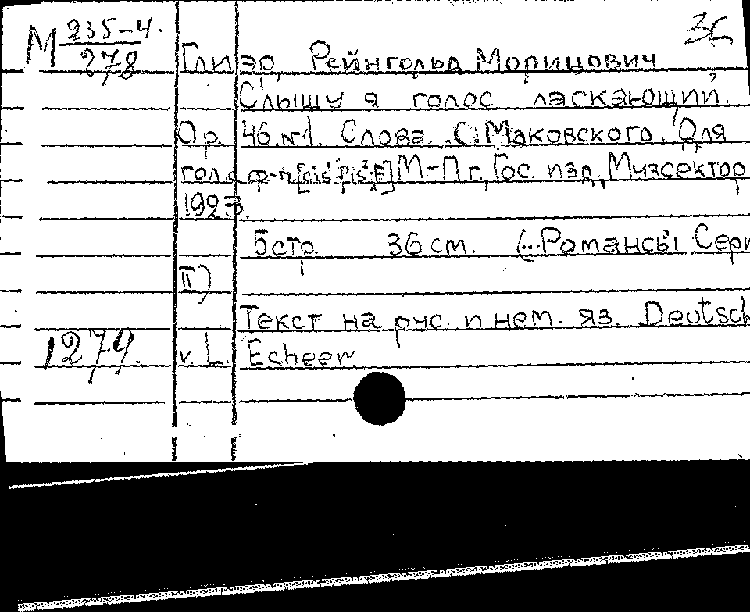 М 235-4. 36
278 Глиэр, Рейнгольд Морицович
Слышу я голос ласкающий.
Ор. 46 №1. Слова С. Маковского. Для
гол. с ф-п М-Пг, Гос. изд, Музсектор
1923.
5 стр. 36 см. (..Романсы Сери
II)
Текст на рус. и нем. яз. Deutsch
1279. v. L. Echeer